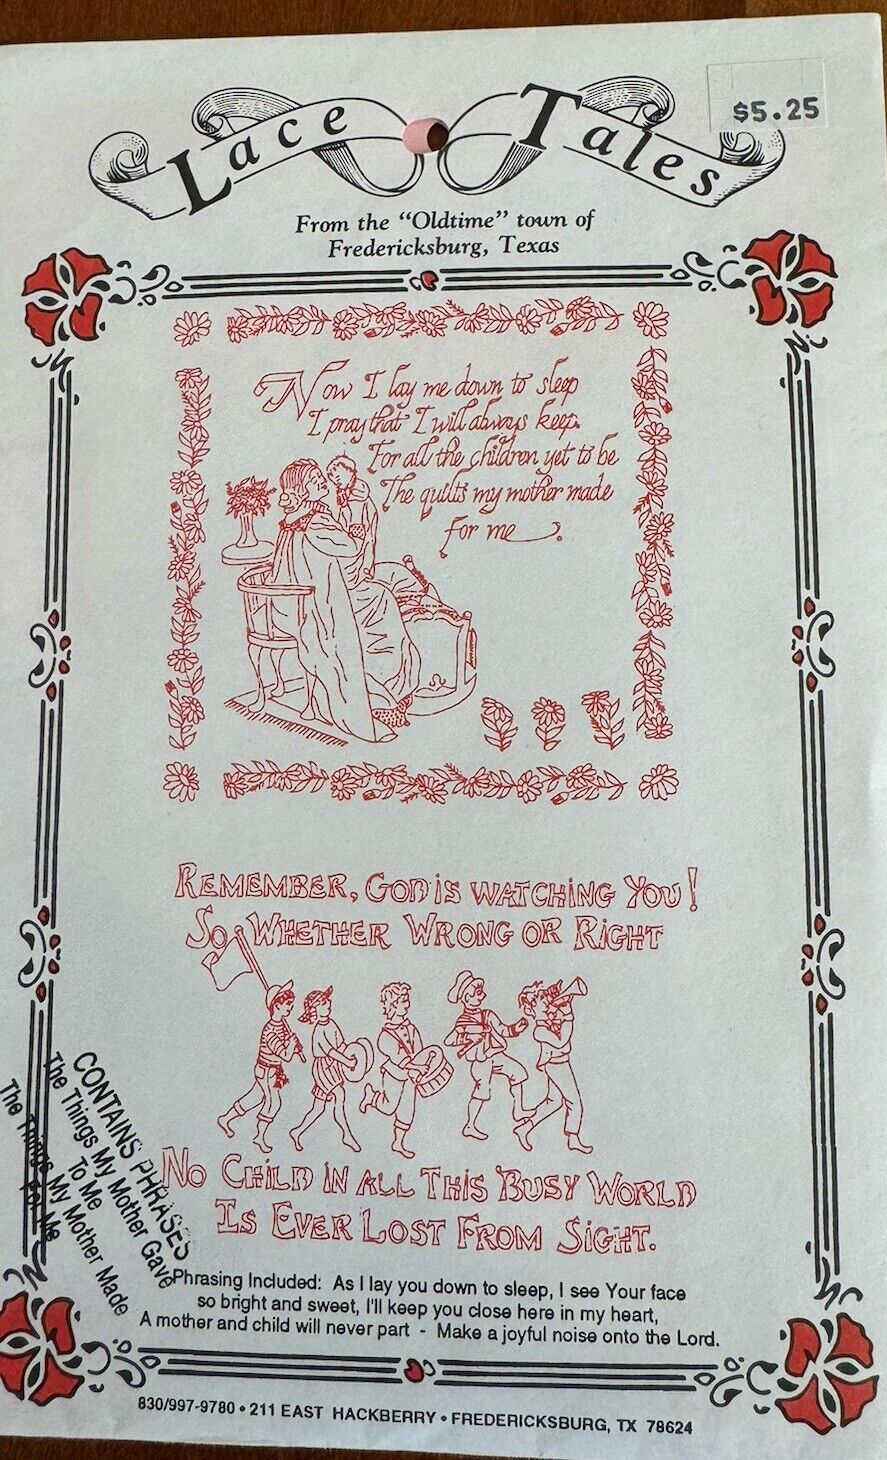 Lace Tales
$5.25
From the "Oldtime" town of
Fredericksburg, Texas
Now I lay me down to sleep
I pray that I will always keep.
For all the children yet to be
The quilts my mother made
for me.
REMEMBER, GOD IS WATCHING YOU!
SO WHETHER WRONG OR RIGHT
NO CHILD IN ALL THIS BUSY WORLD
IS EVER LOST FROM SIGHT.
CONTAINS PHRASES
The Things My Mother Gave
To Me
The Things My Mother Made
For Me
Phrasing Included: As I lay you down to sleep, I see Your face
so bright and sweet, I'll keep you close here in my heart,
A mother and child will never part - Make a joyful noise onto the Lord.
830/997-9780 • 211 EAST HACKBERRY • FREDERICKSBURG, TX 78624